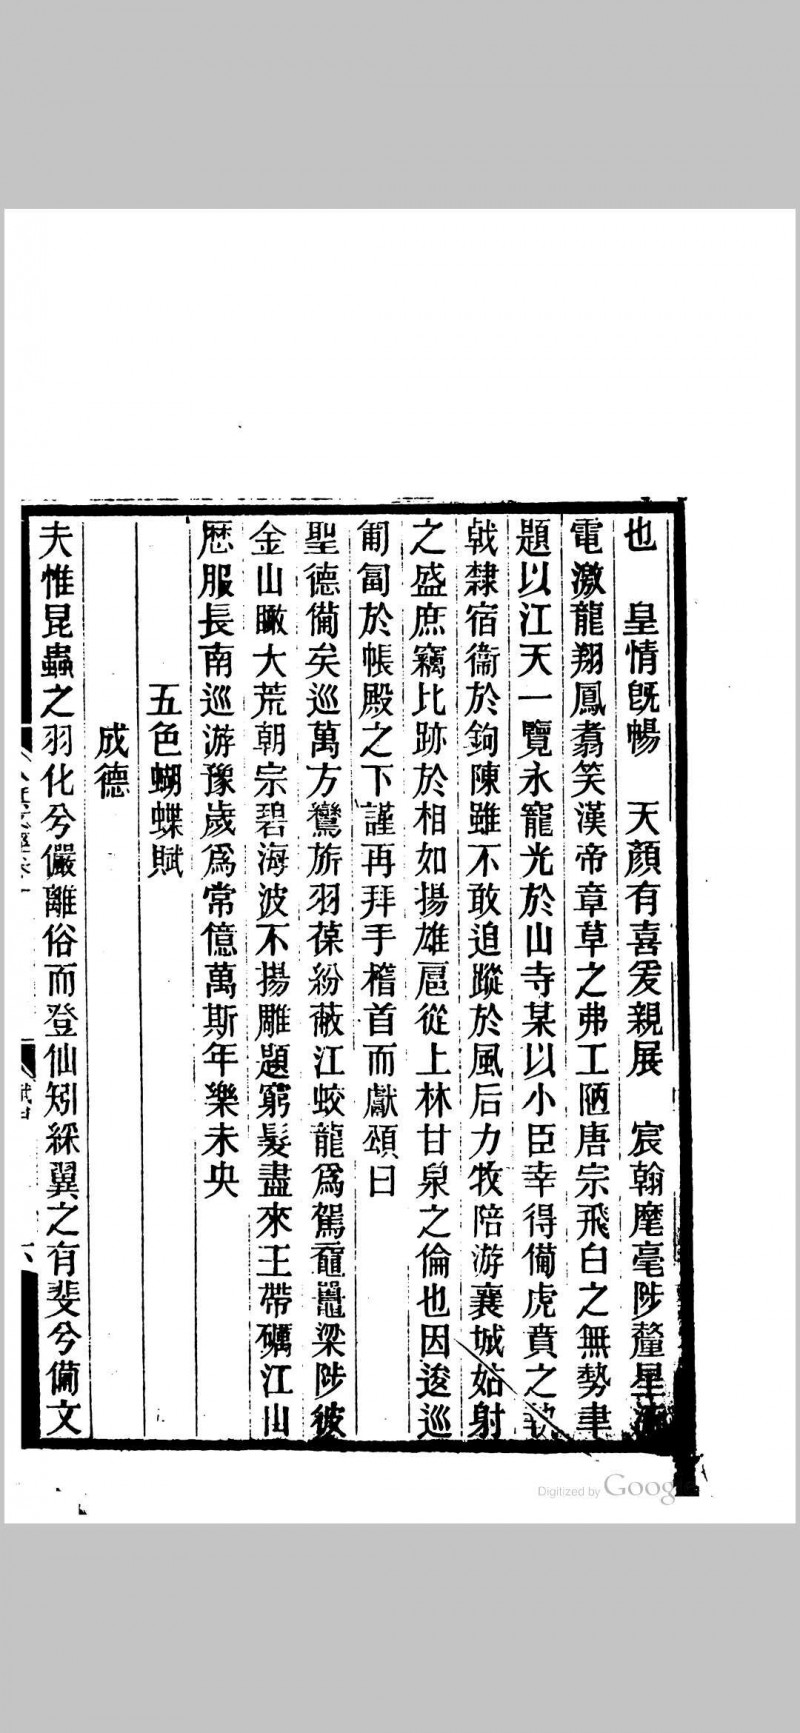 也　皇情旣暢　天顏有喜爰親展　宸翰麾毫陟釐星
電激龍翔鳳翥笑漢帝章草之弗工陋唐宗飛白之無勢聿
題以江天一覽永寵光於山寺某以小臣幸得備虎賁之
戟隸宿衞於鉤陳雖不敢追蹤於風后力牧陪游襄城姑射
之盛庶竊比跡於相如揚雄扈從上林甘泉之倫也因逡巡
匍匐於帳殿之下謹再拜手稽首而獻頌曰
聖德備矣巡萬方鸞旂羽葆紛蔽江蛟龍爲駕黿鼉梁陟彼
金山瞰大荒朝宗碧海波不揚雕題窮髮盡來王帶礪江山
歷服長南巡游豫歲爲常億萬斯年樂未央
五色蝴蝶賦
成德
夫惟昆蟲之羽化兮儼離俗而登仙矧綵翼之有斐兮備文
六
Digitized by Goog